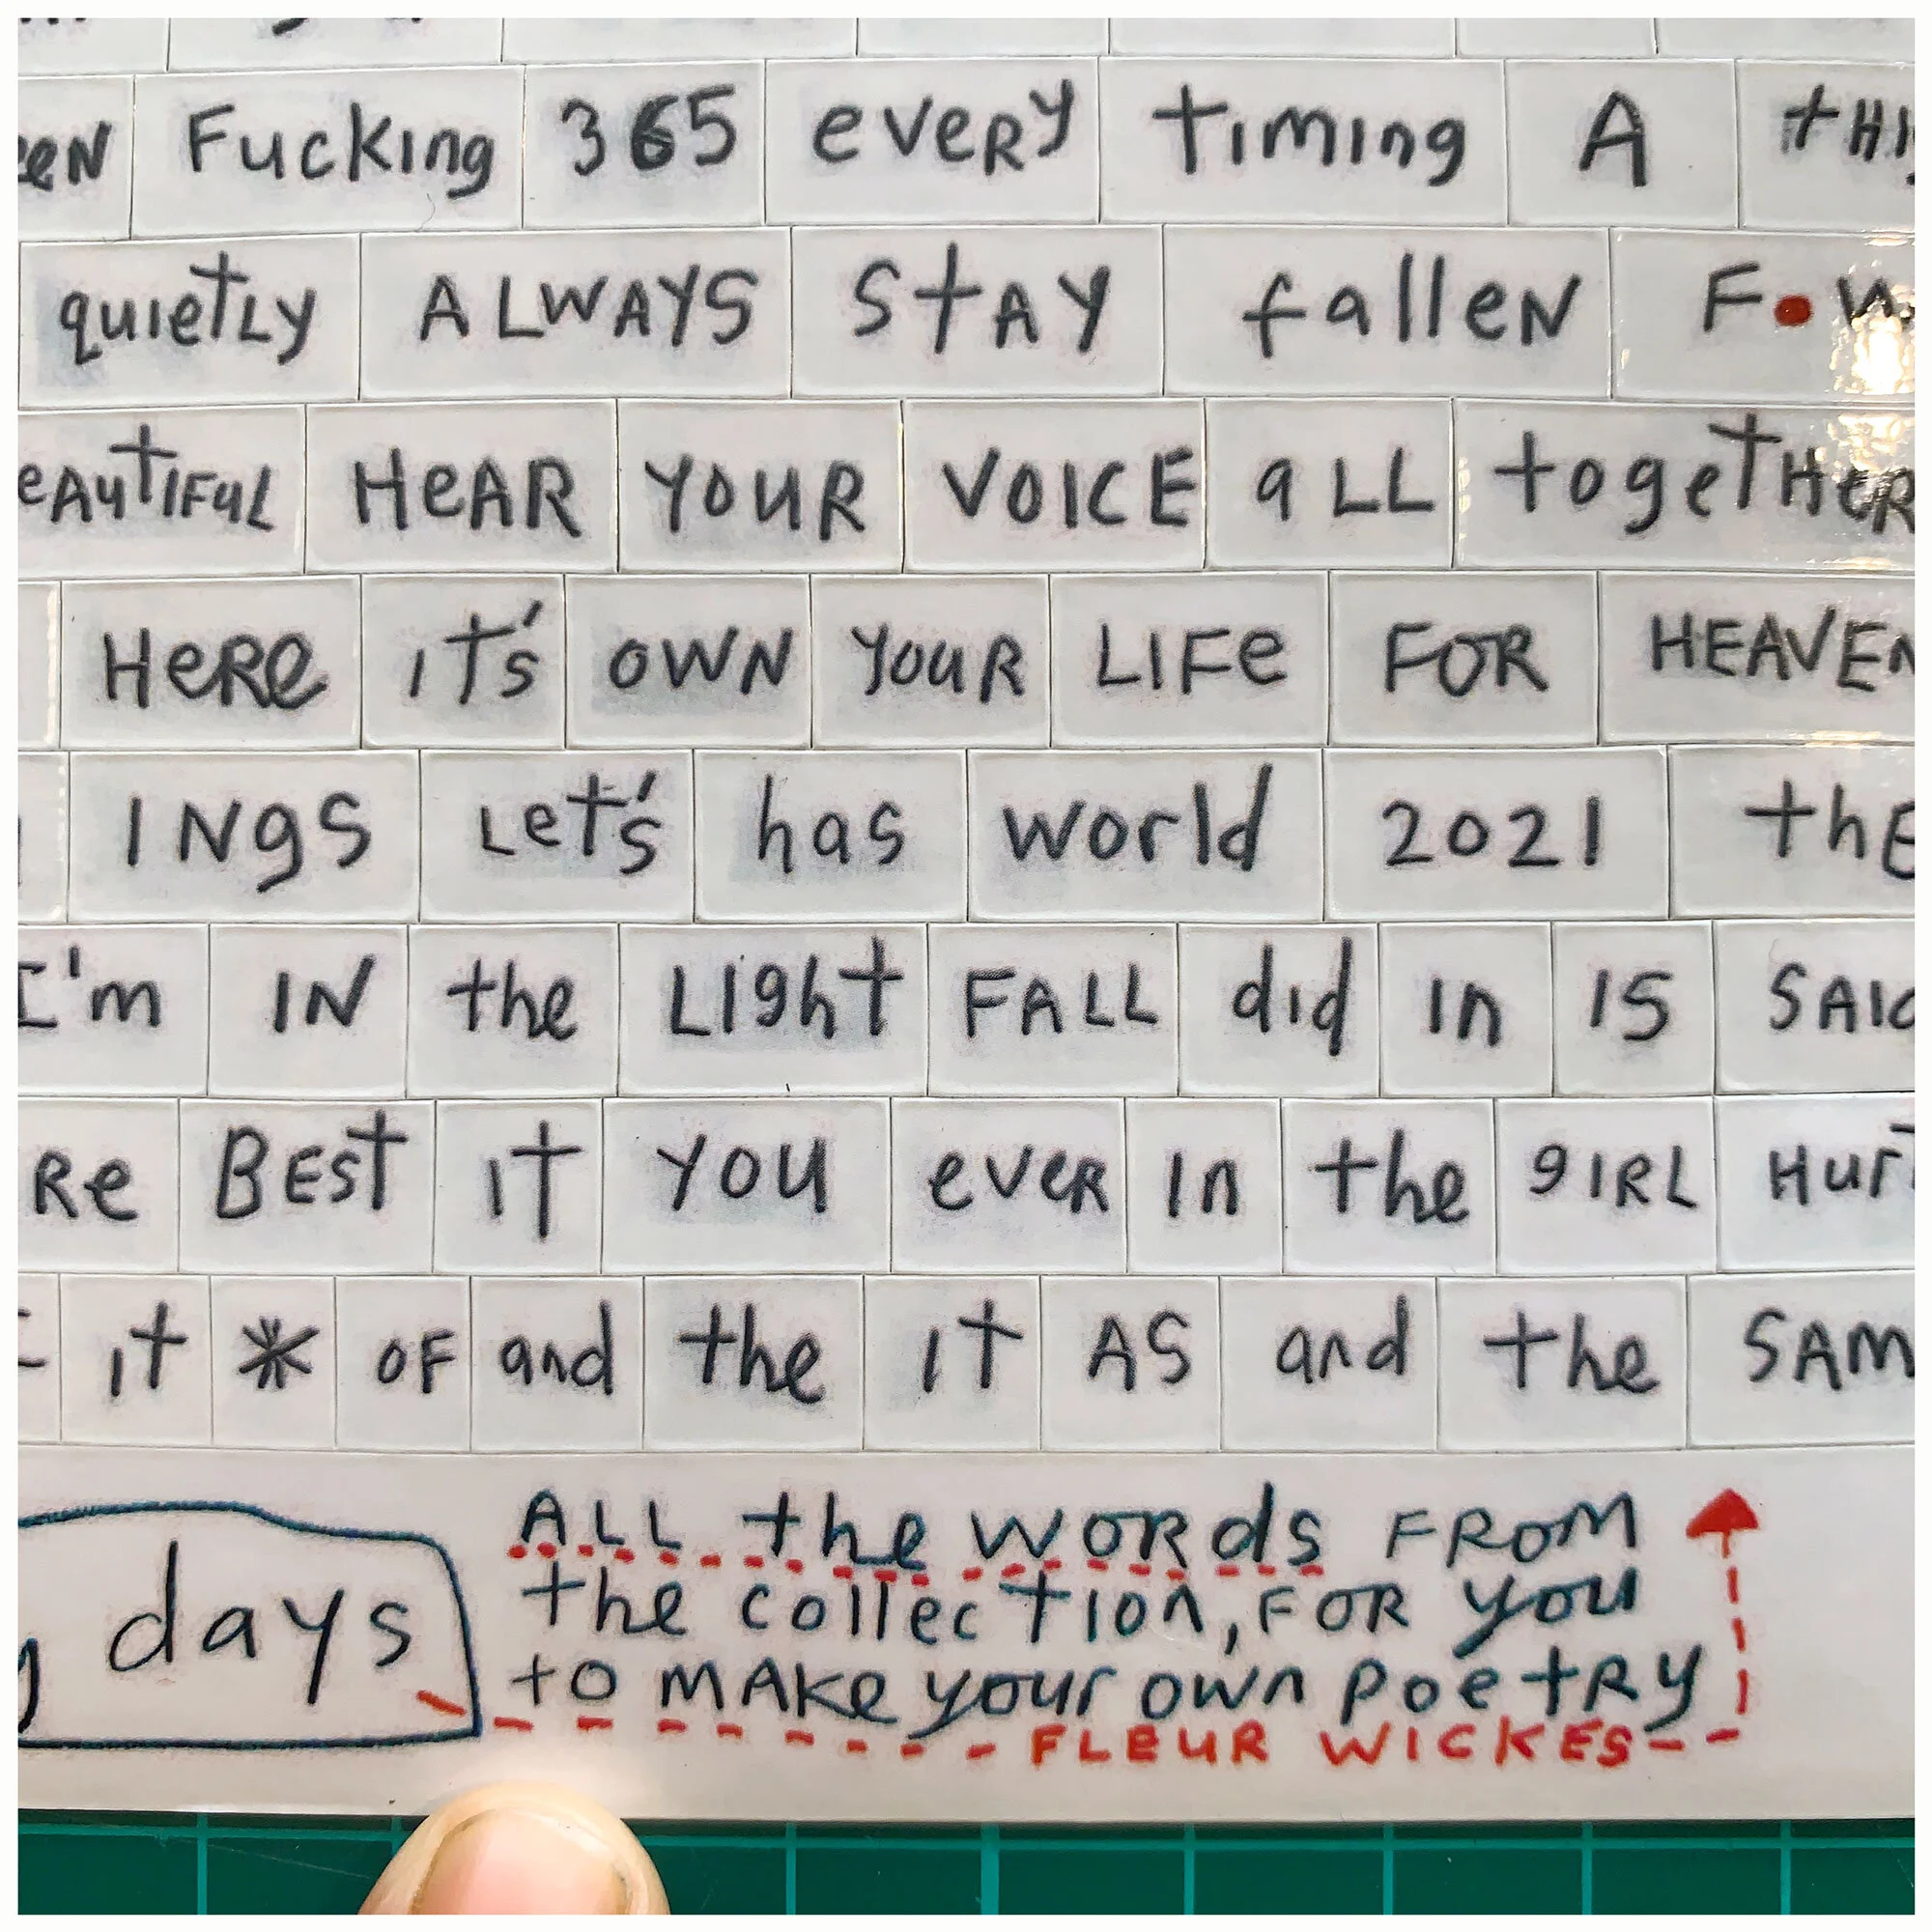 Fucking 365 eveRy tIming A
quietLy ALWAYS StAY fallen
HeAR YOUR VOICE aLL togetHeR
HeRe it's OWN YouR LIFe FOR HEAVEN
INgs Let's has world 2021 thE
I'm IN the LIght FALL did In 15
Re BEst It you eveR In the gIRL Hurt
it * oF and the It AS and the SAM
ALL the woRds FRom
the collection, FOR you
days to mAKe your own PoetRy
FLEUR WICKES